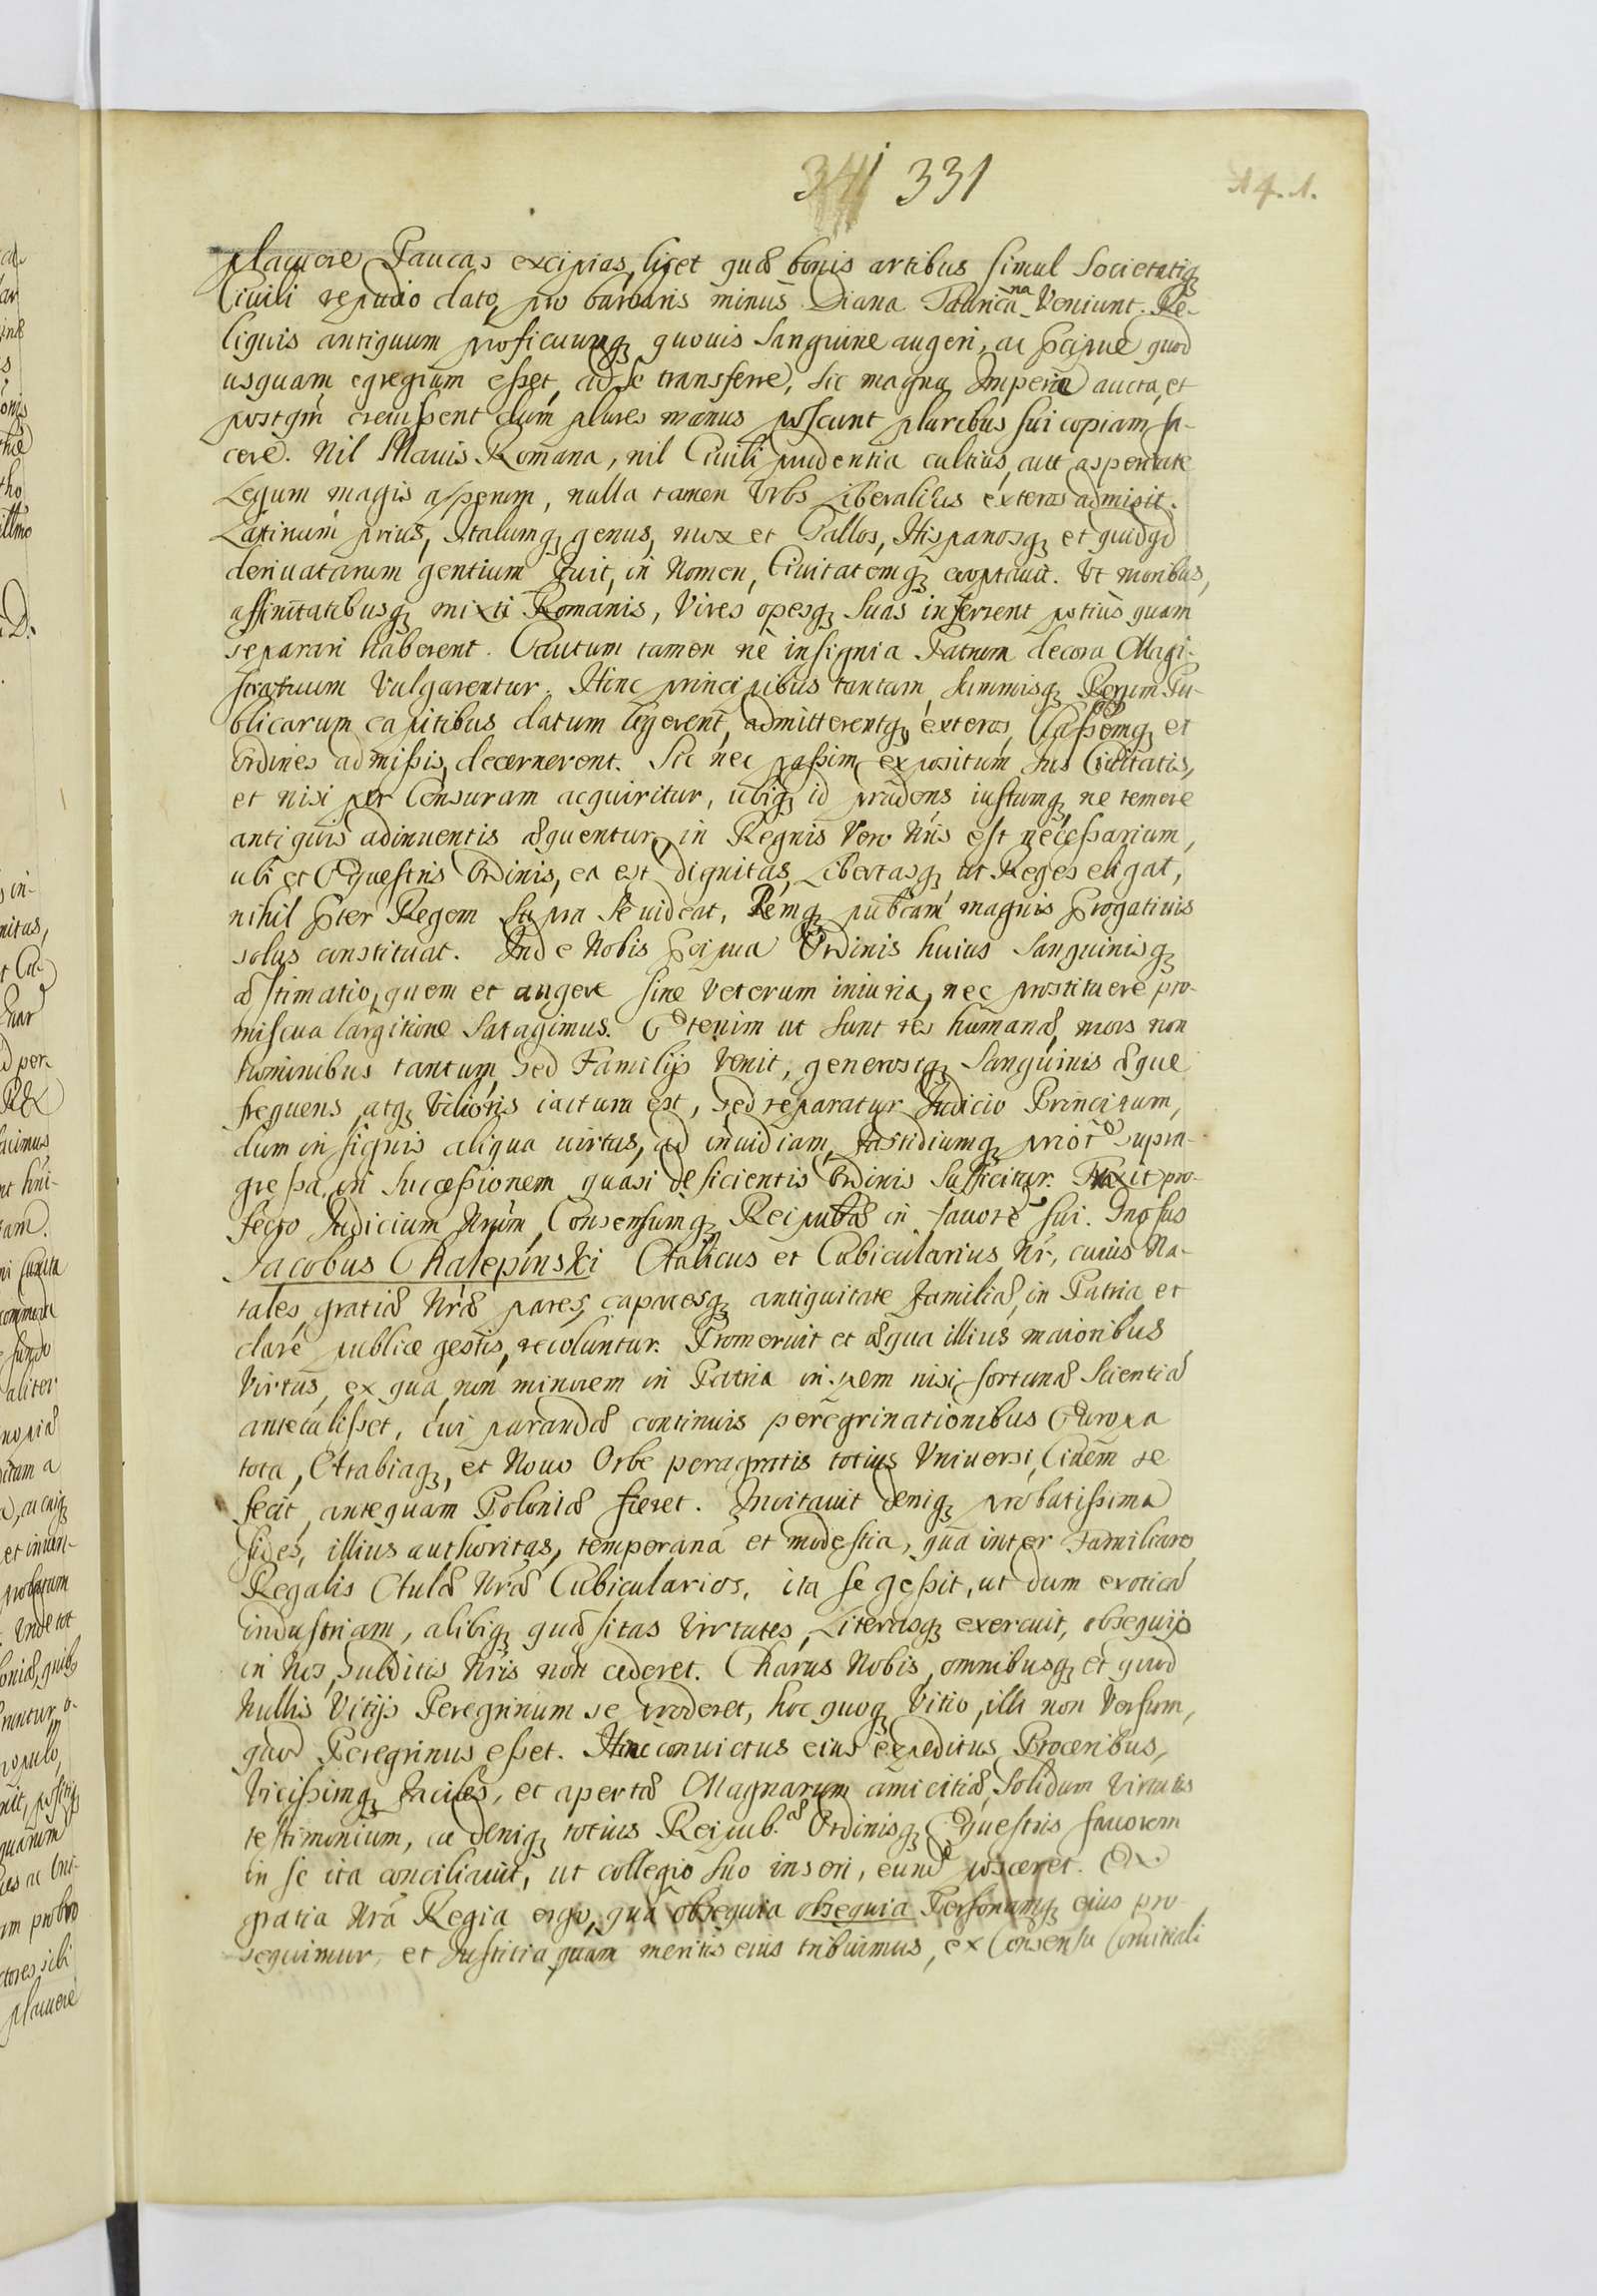 341 331
14.1.
placuere Paucas excipias, licet quæ bonis artibus simul Societatiq3
Civili repudio dato, pro barbaris minus Diana Tauricana Veniunt. Re-
liquis antiquum proficuumq3 quovis Sanguine augeri, ac Pcipue quod
usquam egregium esset, ad se transferre, sic magna Imperia aucta, et
postqm crevissent dum plures manus poscunt pluribus sui copiam fa-
cere. Nil Mavis Romana, nil Civili prudentia cultius, aut asperitate
Legum magis asperum, nulla tamen Urbs Liberalius exteros admisit.
Latinum prius, Italumq3 genus, mox et Gallos, Hispanosq3 et quidqd
derivatarum gentium fuit, in Nomen, Civitatemq3 cooptavit. Ut moribus,
affinitatibusq3 mixti Romanis, Vires opesq3 suas inferrent potius quam
separari haberent. Cautum tamen ne insignia Patrum decora Magi-
stratuum Vulgarentur. Hinc principibus tantum, summisq3 Rerum Pu-
blicarum capitibus datum legerent, admitterentq3 exteros, Classemq3 et
Ordines admissis, decernerent. Sic nec passim expositum Ius Civitatis,
et nisi per Censuram acquiritur, ubiq3 id prudens iustumq3 ne temere
antiquis adinventis æquentur, in Regnis Vero Nris est necessarium,
ubi et Equestris Ordinis, ea est Dignitas, Libertasq3 ut Reges eligat,
nihil Pter Regem supra se videat, Remq3 pubcam magnis Progativis
solus constituat. Inde Nobis Pcipua Ordinis huius Sanguinisq3
æstimatio, quem et augere sine Veterum iniuria, nec prostituere pro-
miscua largitione Satagimus. Etenim ut sunt res humanæ, mors non
hominibus tantum, sed Familijs Venit, generosiq3 Sanguinis æque
frequens, atq3 Vilioris iactura est, sed reparatur Iudicio Principum,
dum insignis aliqua virtus, ad invidiam, fastidiumq3 prior supra-
gressa, in Successionem quasi deficientis Ordinis Sufficitur. Traxit pro-
fecto Iudicium Nrum, Consensumq3 Reipubcæ in favore sui. Gnosus
Jacobus Chalepinski Aulicus et Cubicularius Nr, cuius Na-
tales, gratiæ Nræ pares, capacesq3 antiquitate familiæ, in Patria et
clare publice gestis, revoluntur. Promeruit et æqua illius maioribus
Virtus, ex qua non minorem in Patria in spem nisi fortunæ Scientiæ
antetulisset, cui parandæ continuis peregrinationibus Europa
tota, Arabiaq3, et Novo Orbe peragratis totius Universi, Civem se
fecit, antequam Poloniæ fieret. Invitavit deniq3 probatissima
fides, illius authoritas, temperana et modestia, qua inter Familiares
Regalis Aulæ Nræ Cubicularios, ita se gessit, ut dum exoticæ
industriam, alibiq3 quæsitas Virtutes, Literasq3 exercuit, obsequijs
in Nos, Subditis Nris non cederet. Charus Nobis, omnibusq3 et quod
Nullis Vitijs Peregrinum se proderet, hoc quoq3 Vitio, illi non Versum,
quod Peregrinus esset. Hinc convictus eius expeditus Proceribus,
Vicissimq3 faciles, et apertæ Magnarum amicitiæ, Solidum Virtutis
testimonium, ac deniq3 totius Reipub.æ Ordinisq3 Equestris favorem
in se ita conciliavit, ut collegio suo inseri, eund posceret. Ex
gratia Nra Regia ergo, qua obsequia obsequia Personamq3 eius pro-
sequimur, et Iustitia quam meritis eius tribuimus, ex Consensu Comitiali